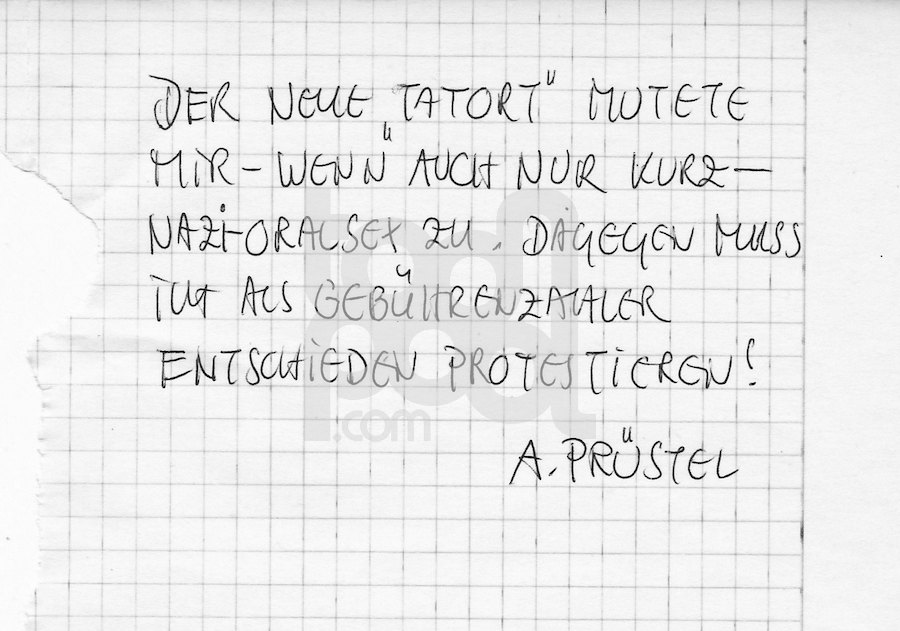 DER NEUE „TATORT" MUTETE
MIR – WENN AUCH NUR KURZ –
NAZI-ORALSEX ZU. DAGEGEN MUSS
ICH ALS GEBÜHRENZAHLER
ENTSCHIEDEN PROTESTIEREN!
A. PRÜSTEL
toonpool
.com